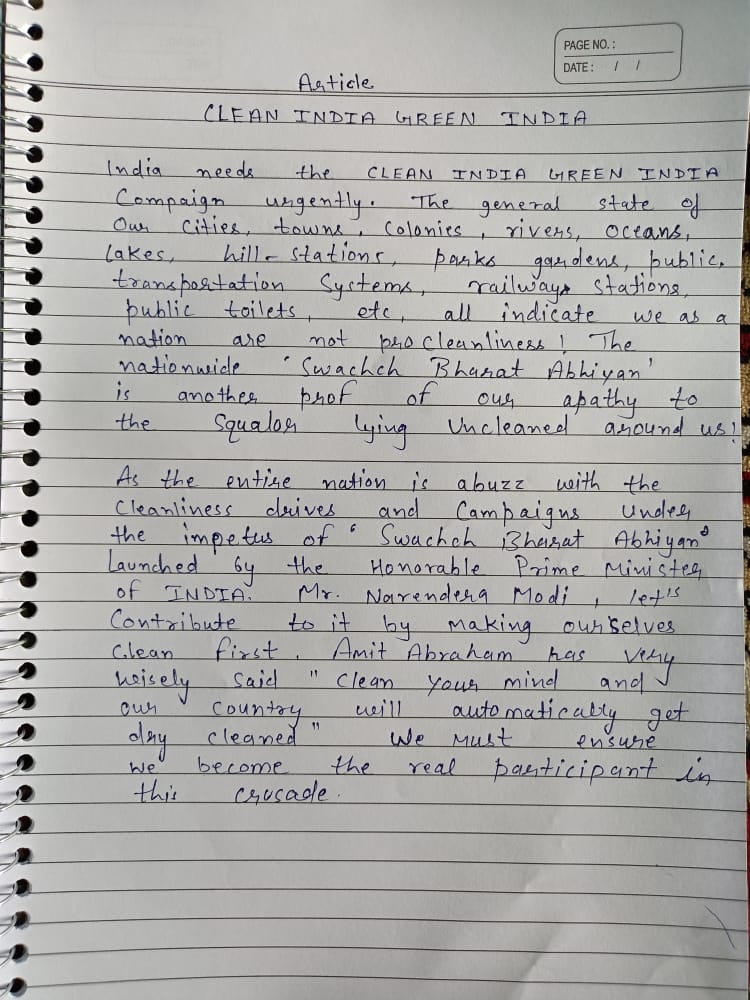 PAGE NO. :
DATE : / /
Article
CLEAN INDIA GREEN INDIA
India needs the CLEAN INDIA GREEN INDIA
Campaign urgently. The general state of
Our cities, towns, Colonies, rivers, Oceans,
lakes, hill-stations, parks gardens, public,
transportation Systems, railways Stations,
public toilets, etc, all indicate we as a
nation are not pro cleanliness! The
nationwide 'Swachch Bharat Abhiyan'
is another prof of our apathy to
the Squalor lying Uncleaned around us!
As the entire nation is abuzz with the
Cleanliness drives and Campaigns Under
the impetus of 'Swachch Bharat Abhiyan'
Launched by the Honorable Prime Minister
of INDIA. Mr. Narendera Modi, let's
Contribute to it by making ourselves
Clean first. Amit Abraham has very
weisely Said "Clean your mind and
our country will automatically get
dry cleaned" We Must ensure
we become the real participant in
this crusade.